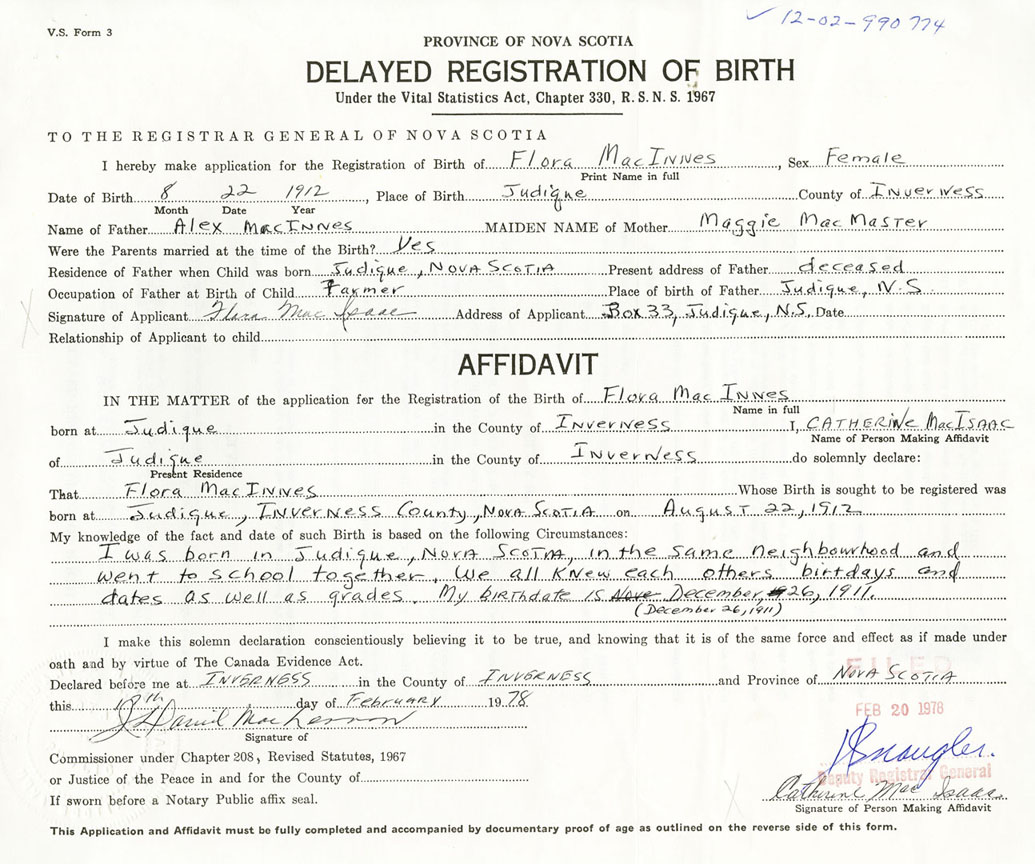 V.S. Form 3
✓ 12-02-990 774
PROVINCE OF NOVA SCOTIA
DELAYED REGISTRATION OF BIRTH
Under the Vital Statistics Act, Chapter 330, R. S. N. S. 1967
TO THE REGISTRAR GENERAL OF NOVA SCOTIA
I hereby make application for the Registration of Birth of Flora MacInnes, Sex Female
Print Name in full
Date of Birth 8 22 1912, Place of Birth Judique County of Inverness
Month Date Year
Name of Father Alex MacInnes MAIDEN NAME of Mother Maggie MacMaster
Were the Parents married at the time of the Birth? Yes
Residence of Father when Child was born Judique, Nova Scotia Present address of Father deceased
Occupation of Father at Birth of Child Farmer Place of birth of Father Judique, N.S.
Signature of Applicant Flora Mac Isaac Address of Applicant Box 33, Judique, N.S. Date
Relationship of Applicant to child
AFFIDAVIT
IN THE MATTER of the application for the Registration of the Birth of Flora MacInnes
Name in full
born at Judique in the County of Inverness I, CATHERINE MacISAAC
Name of Person Making Affidavit
of Judique in the County of Inverness do solemnly declare:
Present Residence
That Flora MacInnes Whose Birth is sought to be registered was
born at Judique, Inverness County, Nova Scotia on August 22, 1912
My knowledge of the fact and date of such Birth is based on the following Circumstances:
I was born in Judique, Nova Scotia, in the same neighbourhood and
went to school together. We all knew each others birtdays and
dates as well as grades. My Birthdate is Nove December, 26, 1911.
(December 26, 1911)
I make this solemn declaration conscientiously believing it to be true, and knowing that it is of the same force and effect as if made under
oath and by virtue of The Canada Evidence Act.
Declared before me at INVERNESS in the County of INVERNESS and Province of Nova Scotia
FILED
this day of February 1978
FEB 20 1978
Signature of
Commissioner under Chapter 208, Revised Statutes, 1967
or Justice of the Peace in and for the County of
Deputy Registrar General
Catherine Mac Isaac
If sworn before a Notary Public affix seal.
Signature of Person Making Affidavit
This Application and Affidavit must be fully completed and accompanied by documentary proof of age as outlined on the reverse side of this form.